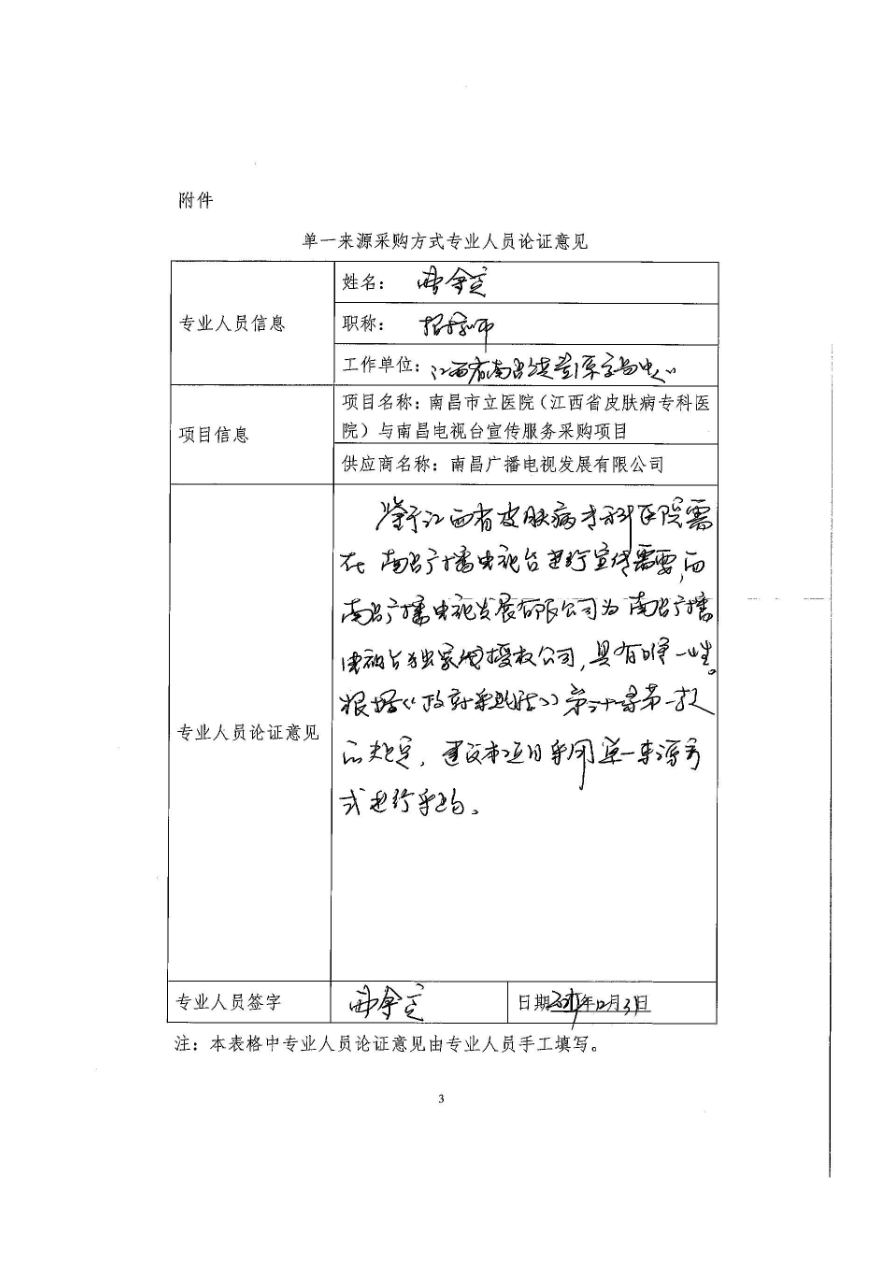 附件
单一来源采购方式专业人员论证意见
专业人员信息
姓名：
职称：
工作单位：江西省南昌
项目信息
项目名称：南昌市立医院（江西省皮肤病专科医
院）与南昌电视台宣传服务采购项目
供应商名称：南昌广播电视发展有限公司
专业人员论证意见
鉴于江西省皮肤病专科医院需
在南昌广播电视台进行宣传需要，而
南昌广播电视发展有限公司为南昌广播
电视台独家授权公司，具有唯一性。
根据《政府采购法》第三十一条第一款
的规定，建议本项目采用单一来源方
式进行采购。
专业人员签字
日期 年12月31日
注：本表格中专业人员论证意见由专业人员手工填写。
3